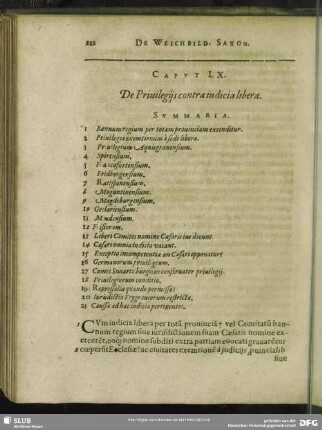 212 DE WEICHBILD. SAXON.
CAPVT LX.
De Priuilegijs contra iudicia libera.
SVMMARIA.
1 Bannum regium per totam prouinciam extenditur.
2 Priuilegia exemtionum à sede libera.
3 Priuilegium Aquisgranensium.
4 Spirensium,
5 Francofortensium.
6 Fridbergensium.
7 Ratisponensium.
8 Moguntinensium.
9 Magdeburgensium.
10 Goslariensium.
11 Mindensium.
12 Frisorum.
13 Liberi Comites nomine Caesaris ius dicunt.
14 Caesari omnia iudicia vacant.
15 Exceptio incompetentiae an Caesari opponatur?
16 Germanorum priuilegium.
17 Comes Suuartzburgicus conseruator priuilegij.
18 Priuilegiorum conditio.
19 Represalia quando permissa?
20 Iurisdictio restricta,
21 Causae ad hac iudicia pertinentes.
1 CVm iudicia libera per totã prouinciã † vel Comitatũ ban-
num regium siue iurisdictionem suam Caesaris nomine ex-
ercerẽt, eoq́ nomine subditi extra patriam euocati grauarẽtur
2 coeperũt Ecclesiae ac ciuitates exemtionẽ à iudicijs
siue
SLUB
Wir führen Wissen.
gefördert von der
Deutschen Forschungsgemeinschaft
DFG